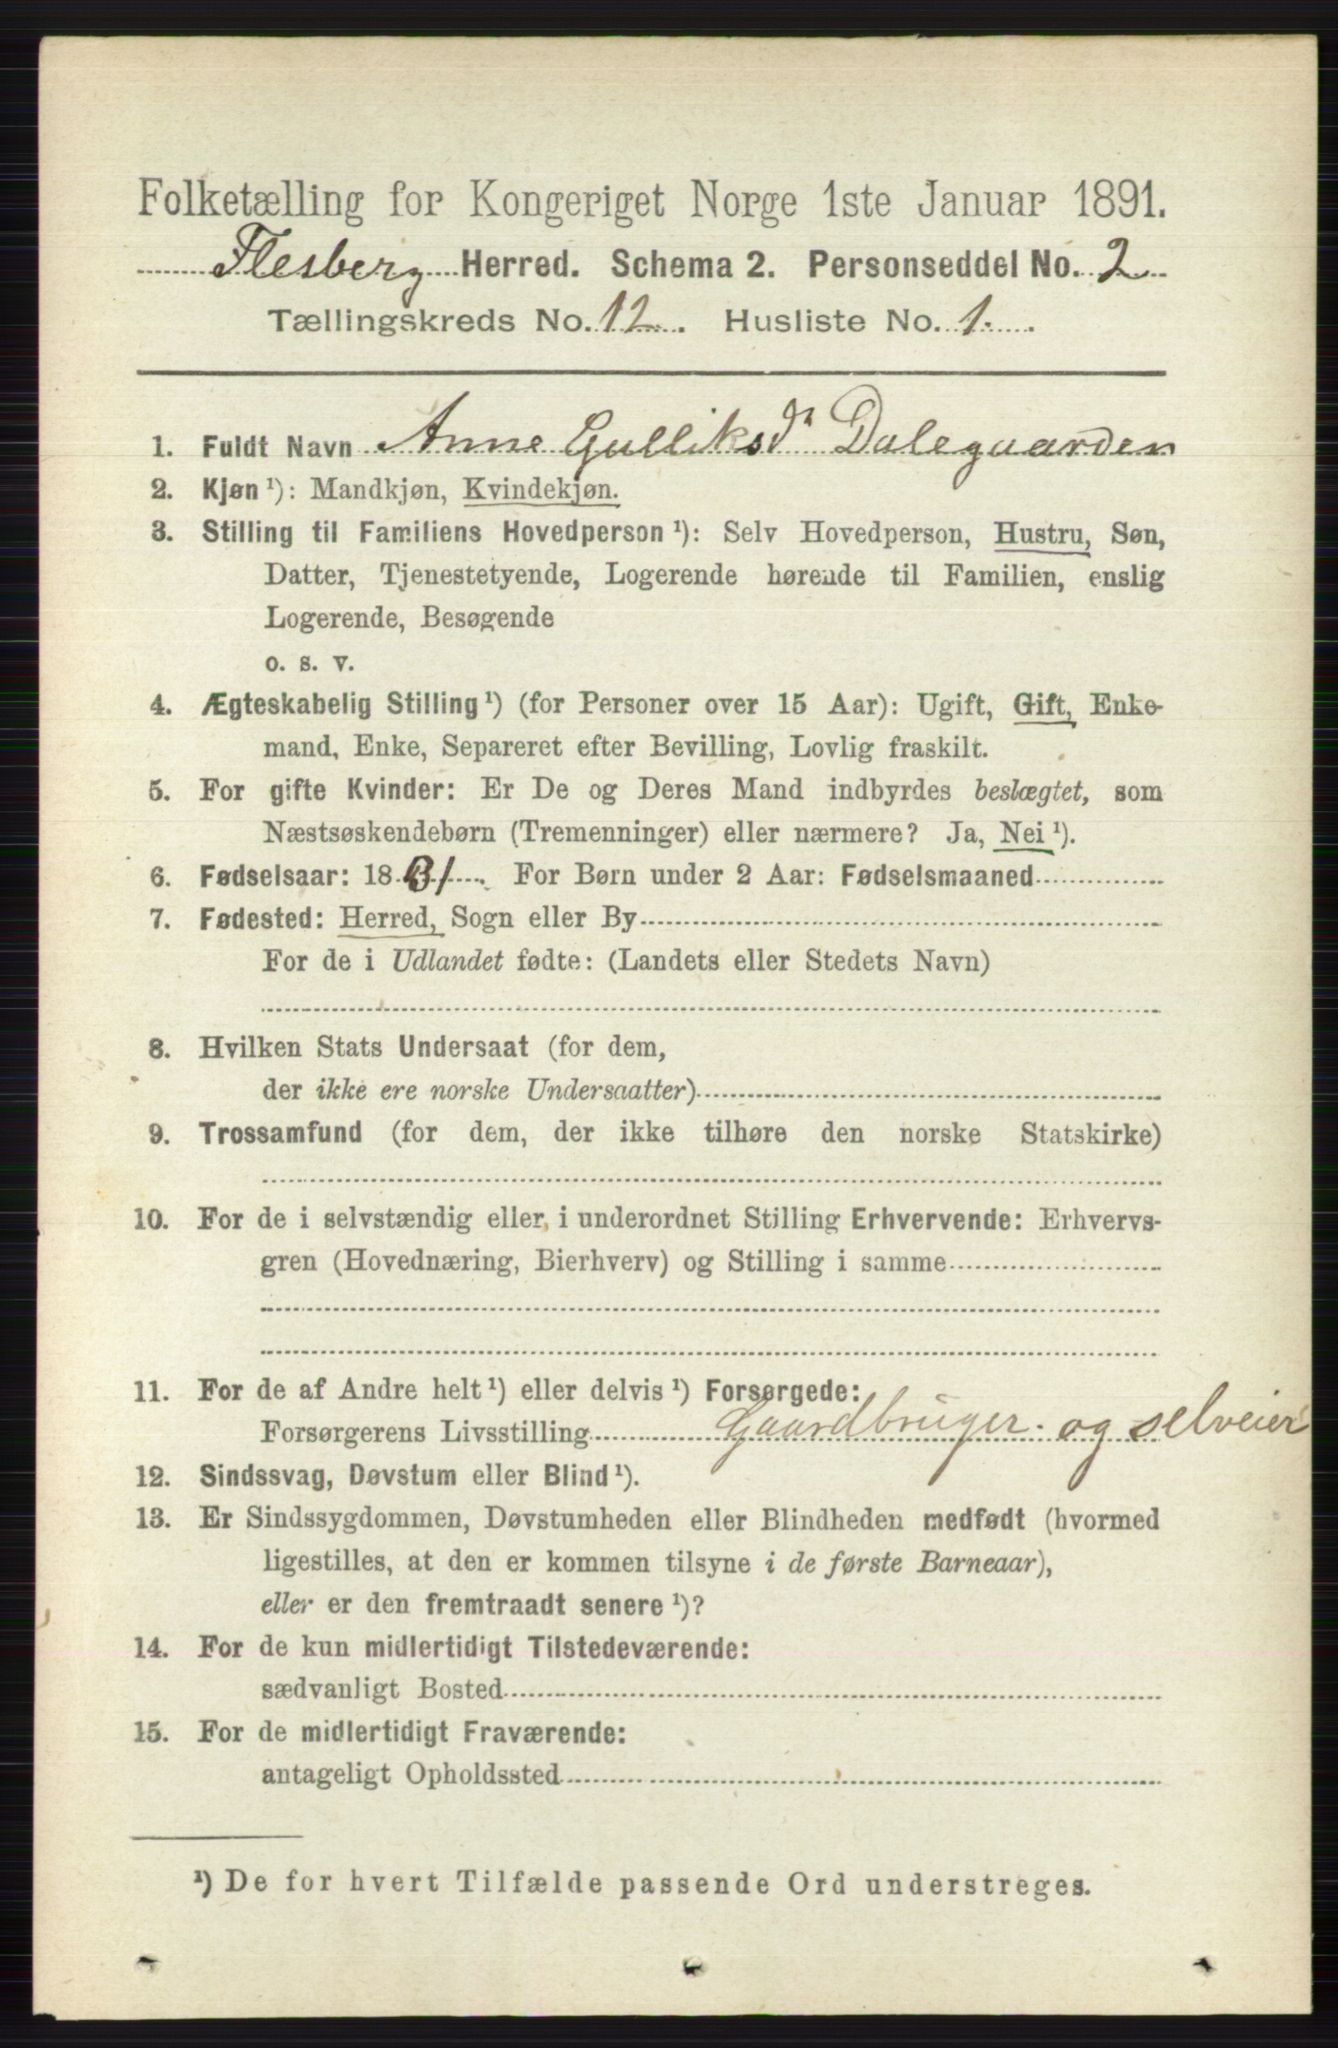 Folketælling for Kongeriget Norge 1ste Januar 1891.
Flesberg Herred. Schema 2. Personseddel No. 2
Tællingskreds No. 12. Husliste No. 1.
1. Fuldt Navn Anne Gulliksdr Dalegaarden
2. Kjøn ¹): Mandkjøn, Kvindekjøn.
3. Stilling til Familiens Hovedperson ¹): Selv Hovedperson, Hustru, Søn,
Datter, Tjenestetyende, Logerende hørende til Familien, enslig
Logerende, Besøgende
o. s. v.
4. Ægteskabelig Stilling ¹) (for Personer over 15 Aar): Ugift, Gift, Enke-
mand, Enke, Separeret efter Bevilling, Lovlig fraskilt.
5. For gifte Kvinder: Er De og Deres Mand indbyrdes beslægtet, som
Næstsøskendebørn (Tremenninger) eller nærmere? Ja, Nei ¹).
6. Fødselsaar: 1831. For Børn under 2 Aar: Fødselsmaaned
7. Fødested: Herred, Sogn eller By
For de i Udlandet fødte: (Landets eller Stedets Navn)
8. Hvilken Stats Undersaat (for dem,
der ikke ere norske Undersaatter)
9. Trossamfund (for dem, der ikke tilhøre den norske Statskirke)
10. For de i selvstændig eller i underordnet Stilling Erhvervende: Erhvervs-
gren (Hovednæring, Bierhverv) og Stilling i samme
11. For de af Andre helt ¹) eller delvis ¹) Forsørgede:
Forsørgerens Livsstilling Gaardbruger og selveier
12. Sindssvag, Døvstum eller Blind ¹).
13. Er Sindssygdommen, Døvstumheden eller Blindheden medfødt (hvormed
ligestilles, at den er kommen tilsyne i de første Barneaar),
eller er den fremtraadt senere ¹)?
14. For de kun midlertidigt Tilstedeværende:
sædvanligt Bosted
15. For de midlertidigt Fraværende:
antageligt Opholdssted
¹) De for hvert Tilfælde passende Ord understreges.